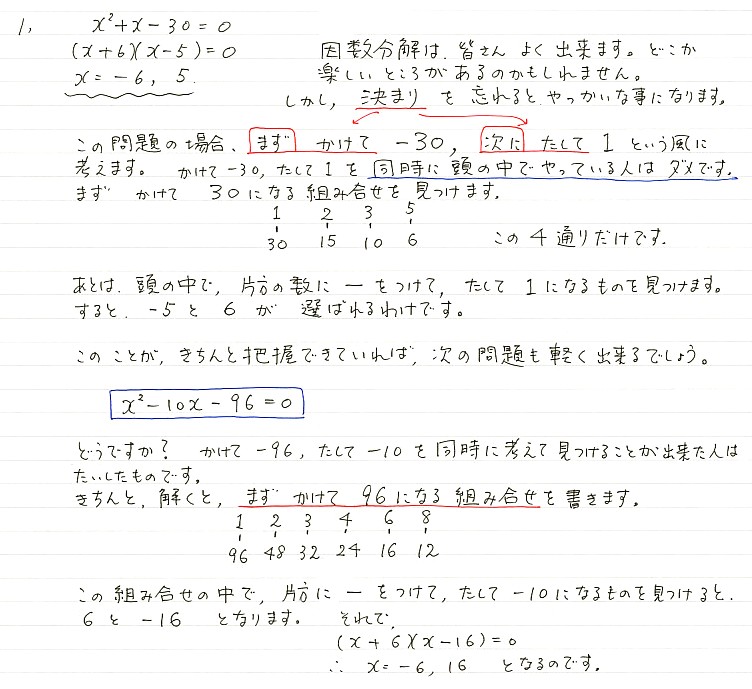 1, x²+x-30=0
(x+6)(x-5)=0
x=-6, 5.
因数分解は、皆さん よく出来ます。どこか
楽しいところがあるのかもしれません。
しかし, 決まり を 忘れると、やっかいな事になります。
この問題の場合、まず かけて -30, 次に たして 1 という風に
考えます。 かけて-30,たして 1 を 同時に 頭の中で やっている人は ダメです。
まず かけて 30になる 組み合せを 見つけます。
1 2 3 5
30 15 10 6 この 4通りだけです.
あとは、頭の中で, 片方の数に ー をつけて, たして 1になるものを見つけます。
すると、-5 と 6 が 選ばれるわけです。
このことが, きちんと把握できていれば, 次の問題も軽く出来るでしょう。
x²-10x-96=0
どうですか? かけて -96, たして -10 を 同時に考えて 見つけることが出来た人は
たいしたものです。
きちんと, 解くと, まず かけて 96になる 組み合せを書きます。
1 2 3 4 6 8
96 48 32 24 16 12
この組み合せの中で, 片方に ー をつけて, たして -10になるものを見つけると、
6 と -16 となります。 それで,
(x+6)(x-16)=0
∴ x=-6, 16 となるのです.